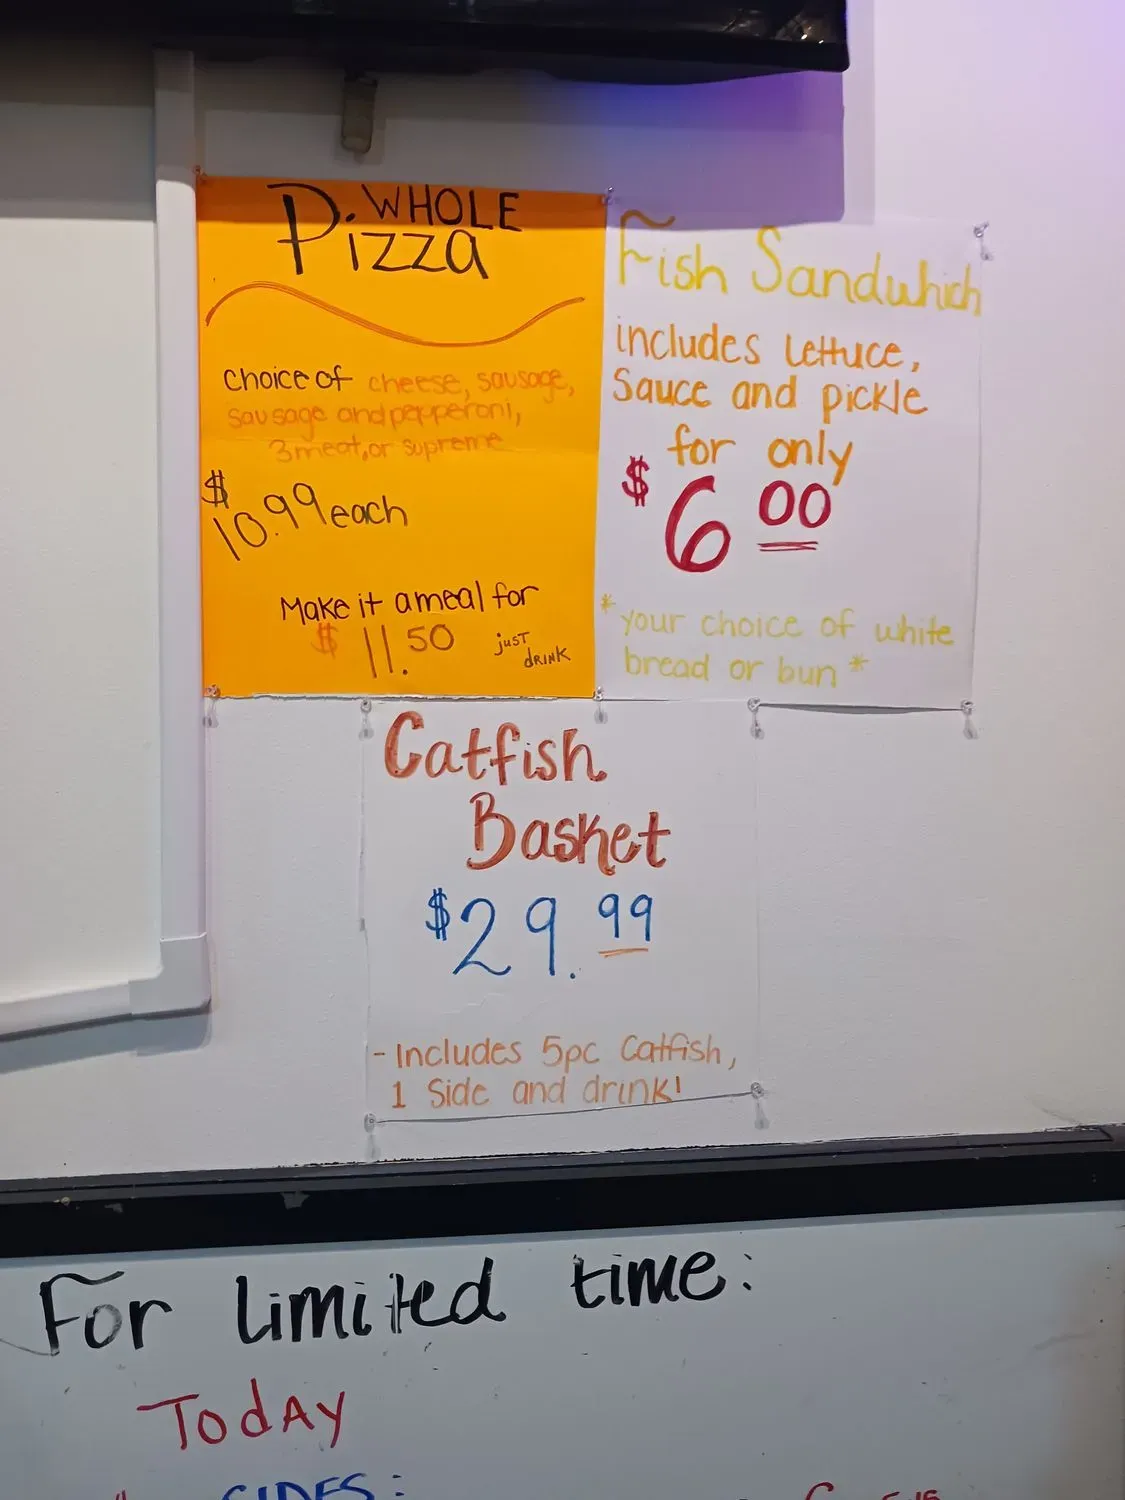 WHOLE
Pizza
choice of cheese, sausage,
sausage and pepperoni,
3 meat, or supreme
$10.99 each
Make it a meal for
$11.50 just
DRINK
Fish Sandwhich
includes Lettuce,
Sauce and pickle
for only
$6 00
*your choice of white
bread or bun*
Catfish
Basket
$29.99
- Includes 5pc Catfish,
1 Side and drink!
For limited time:
TodAy
SIDES: